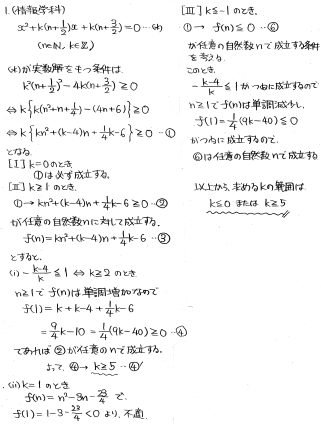 1.(情報学科)
x²+k(n+1/2)x+k(n+3/2)=0 …(*)
(n∈N, k∈Z)
(*)が実数解をもつ条件は
k²(n+1/2)²-4k(n+3/2)≧0
⇔ k{k(n²+n+1/4)-(4n+6)}≧0
⇔ k{kn²+(k-4)n+1/4k-6}≧0 …①
となる.
[I] k=0のとき
①は必ず成立する.
[II] k≧1 のとき
①→ kn²+(k-4)n+1/4k-6≧0…②
が任意の自然数nに対して成立する.
f(n)=kn²+(k-4)n+1/4k-6 …③
とすると,
(i) -(k-4)/k ≦1 ⇔ k≧2 のとき
n≧1で f(n)は単調増加なので
f(1)=k+k-4+1/4k-6
=9/4k-10=1/4(9k-40)≧0…④
であれば ②が任意のnで成立する.
よって, ④→ k≧5 …④′
(ii) k=1 のとき
f(n)=n²-3n-23/4 で.
f(1)=1-3-23/4<0 より, 不適.
[III] k≦-1 のとき,
①→ f(n)≦0 …⑥
が任意の自然数nで成立する条件
を考える.
このとき
-(k-4)/k ≦1 がつねに成立するので
n≧1で f(n)は単調減少し,
f(1)=1/4(9k-40)≦0
がつねに成立するので.
⑥は任意の自然数nで成立する.
以上から, 求めるkの範囲は
k≦0 または k≧5